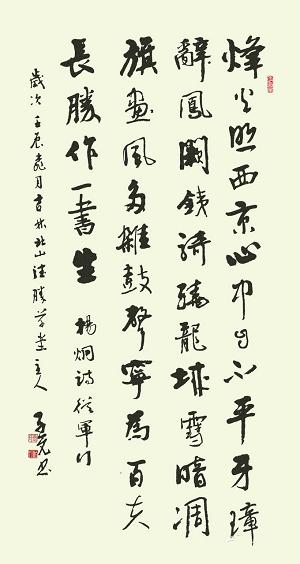 烽火照西京心中自不平牙璋
辭鳳闕銕騎繞龍城雪暗凋
旗畫風多雜鼓聲寧為百夫
長勝作一書生 楊炯詩從軍行
歲次壬辰月書於北山草堂主人